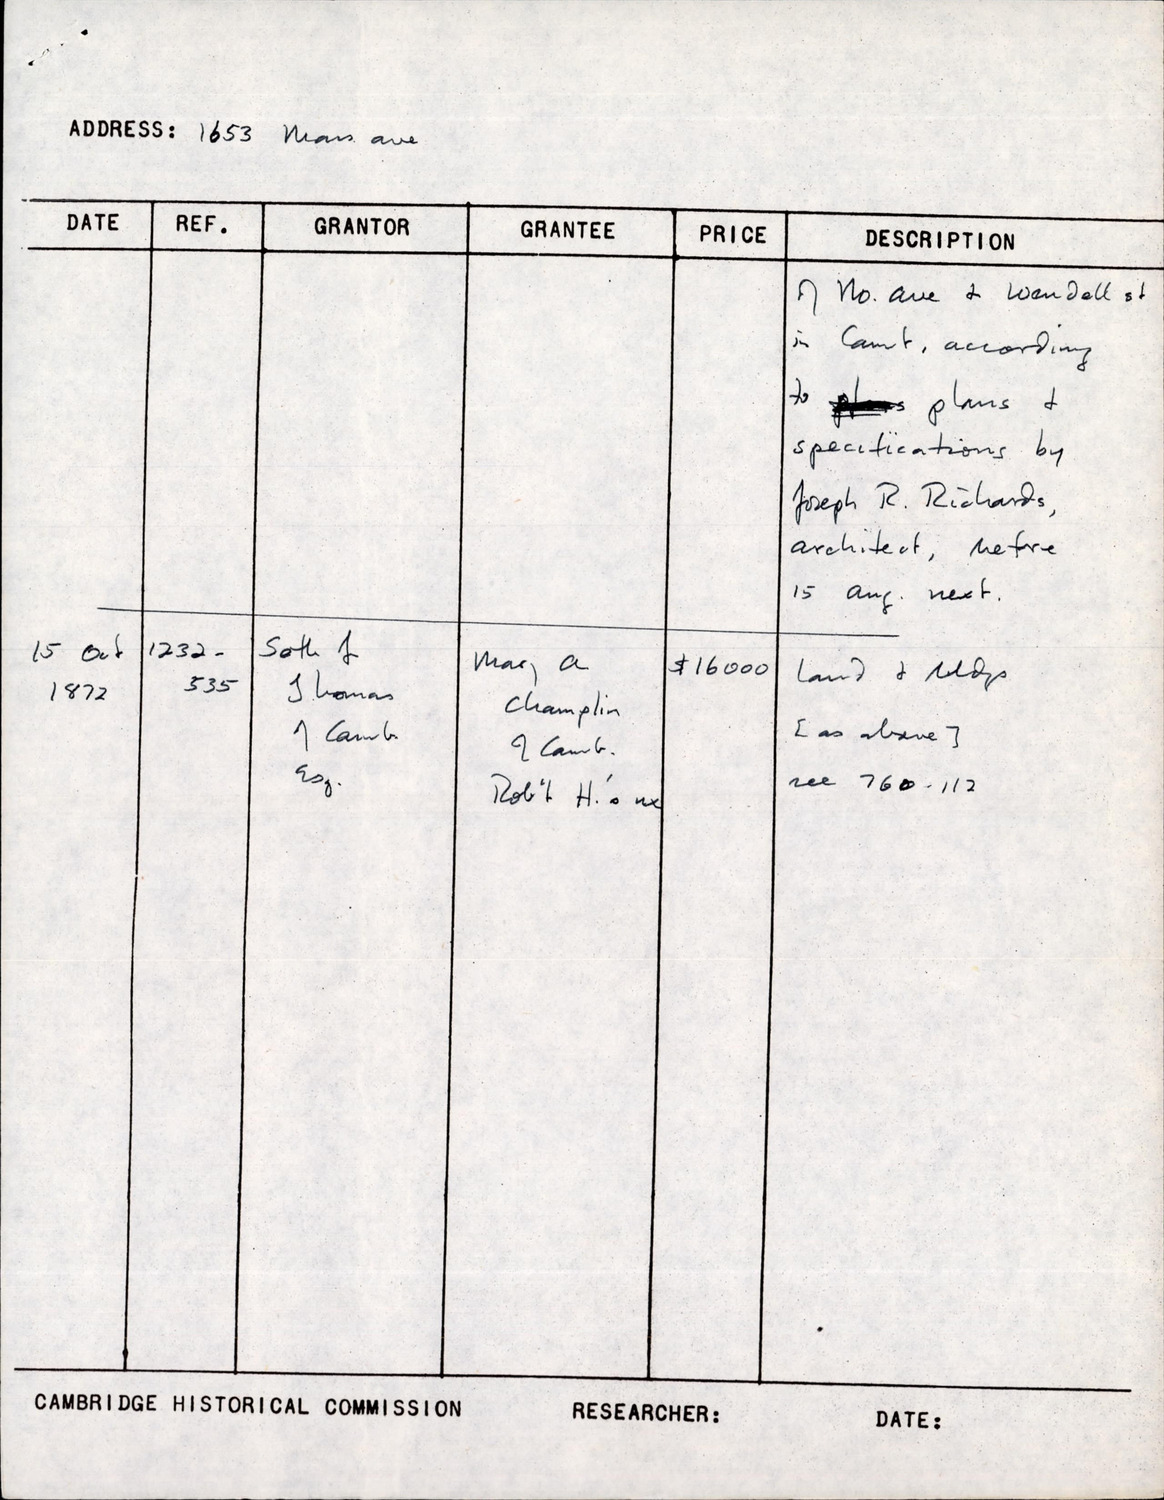 ADDRESS: 1653 Mass ave
DATE REF. GRANTOR GRANTEE PRICE DESCRIPTION
of No. ave & Wendell st
in Camb, according
to plans &
specifications by
Joseph R. Richards,
architect, before
15 aug. next.
15 Oct 1872
1232-535
Seth J
Thomas
of Camb.
Esq.
Mary A
Champlin
of Camb.
Rob't H.'s ux
$16000
Land & bldgs
[as above]
see 760-112
CAMBRIDGE HISTORICAL COMMISSION RESEARCHER: DATE: